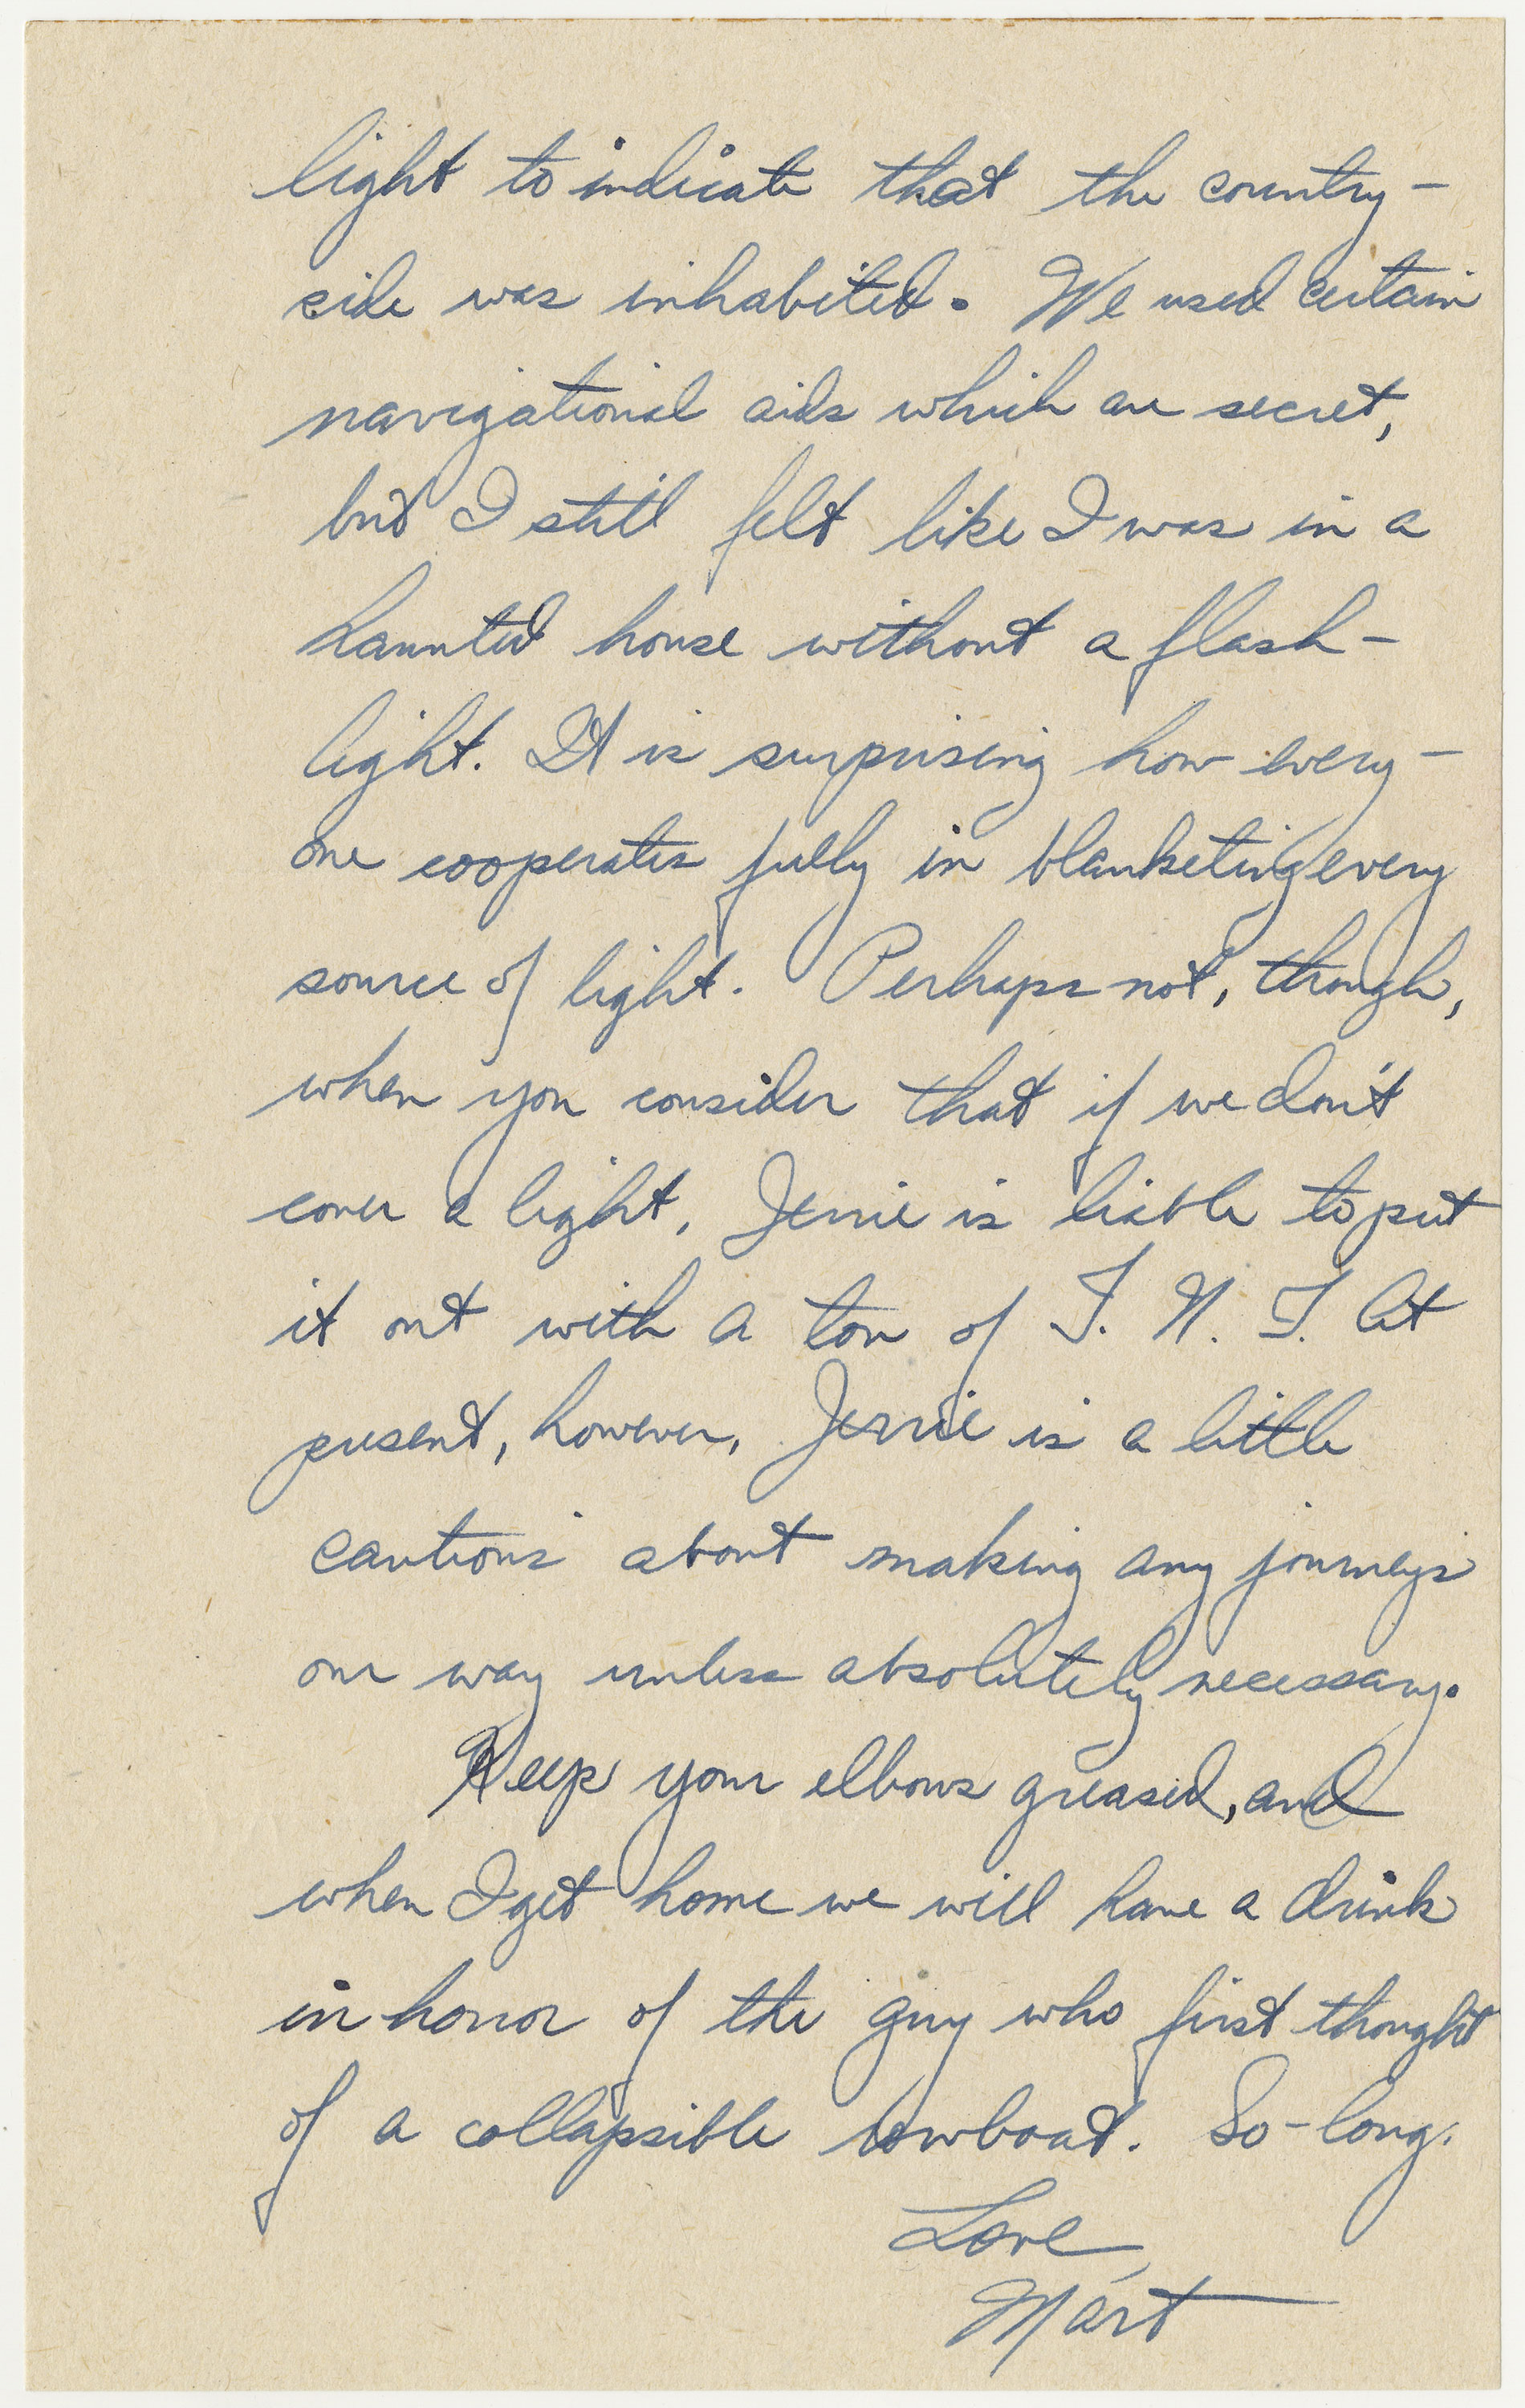 light to indicate that the country-
side was inhabited. We used certain
navigational aids which are secret,
but I still felt like I was in a
haunted house without a flash-
light. It is surprising how every-
one cooperates fully in blanketing every
source of light. Perhaps not, though,
when you consider that if we don't
cover a light, Jerrie is liable to put
it out with a ton of T. N. T. At
present, however, Jerrie is a little
cautious about making any journeys
our way unless absolutely necessary.
Keep your elbows greased, and
when I get home we will have a drink
in honor of the guy who first thought
of a collapsible rowboat. So-long.
Love,
Mart